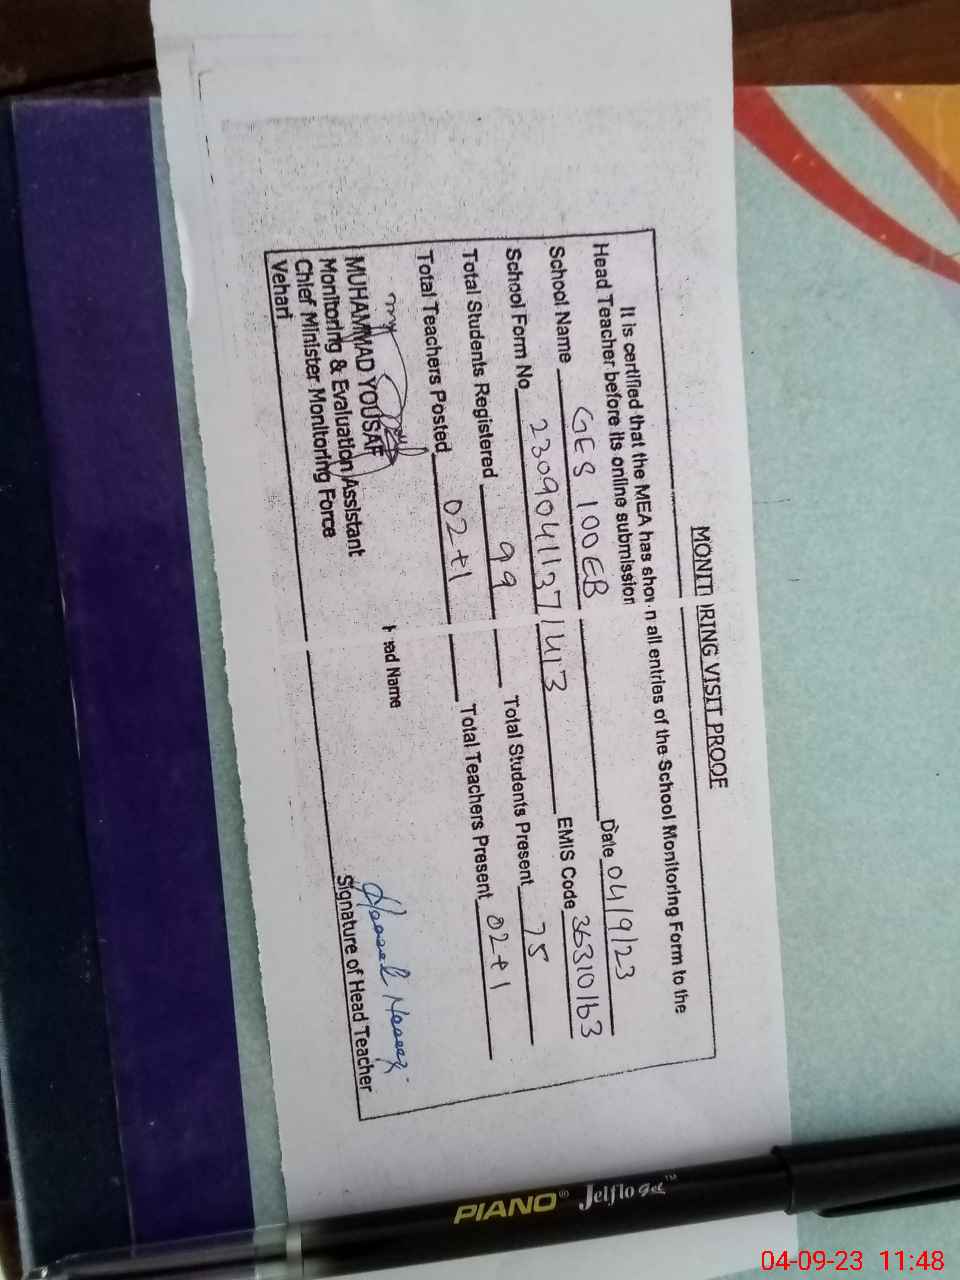 MONITORING VISIT PROOF
It is certified that the MEA has shown all entries of the School Monitoring Form to the
Head Teacher before its online submission
School Name GES 100EB Date 04/9/23
School Form No 2309041137/413 EMIS Code 36310163
Total Students Registered 99 Total Students Present 75
Total Teachers Posted 02+1 Total Teachers Present 02+1
MUHAMMAD YOUSAF Head Name
Monitoring & Evaluation Assistant
Chief Minister Monitoring Force
Vehari
Signature of Head Teacher
PIANO® Jelflo gel™
04-09-23 11:48